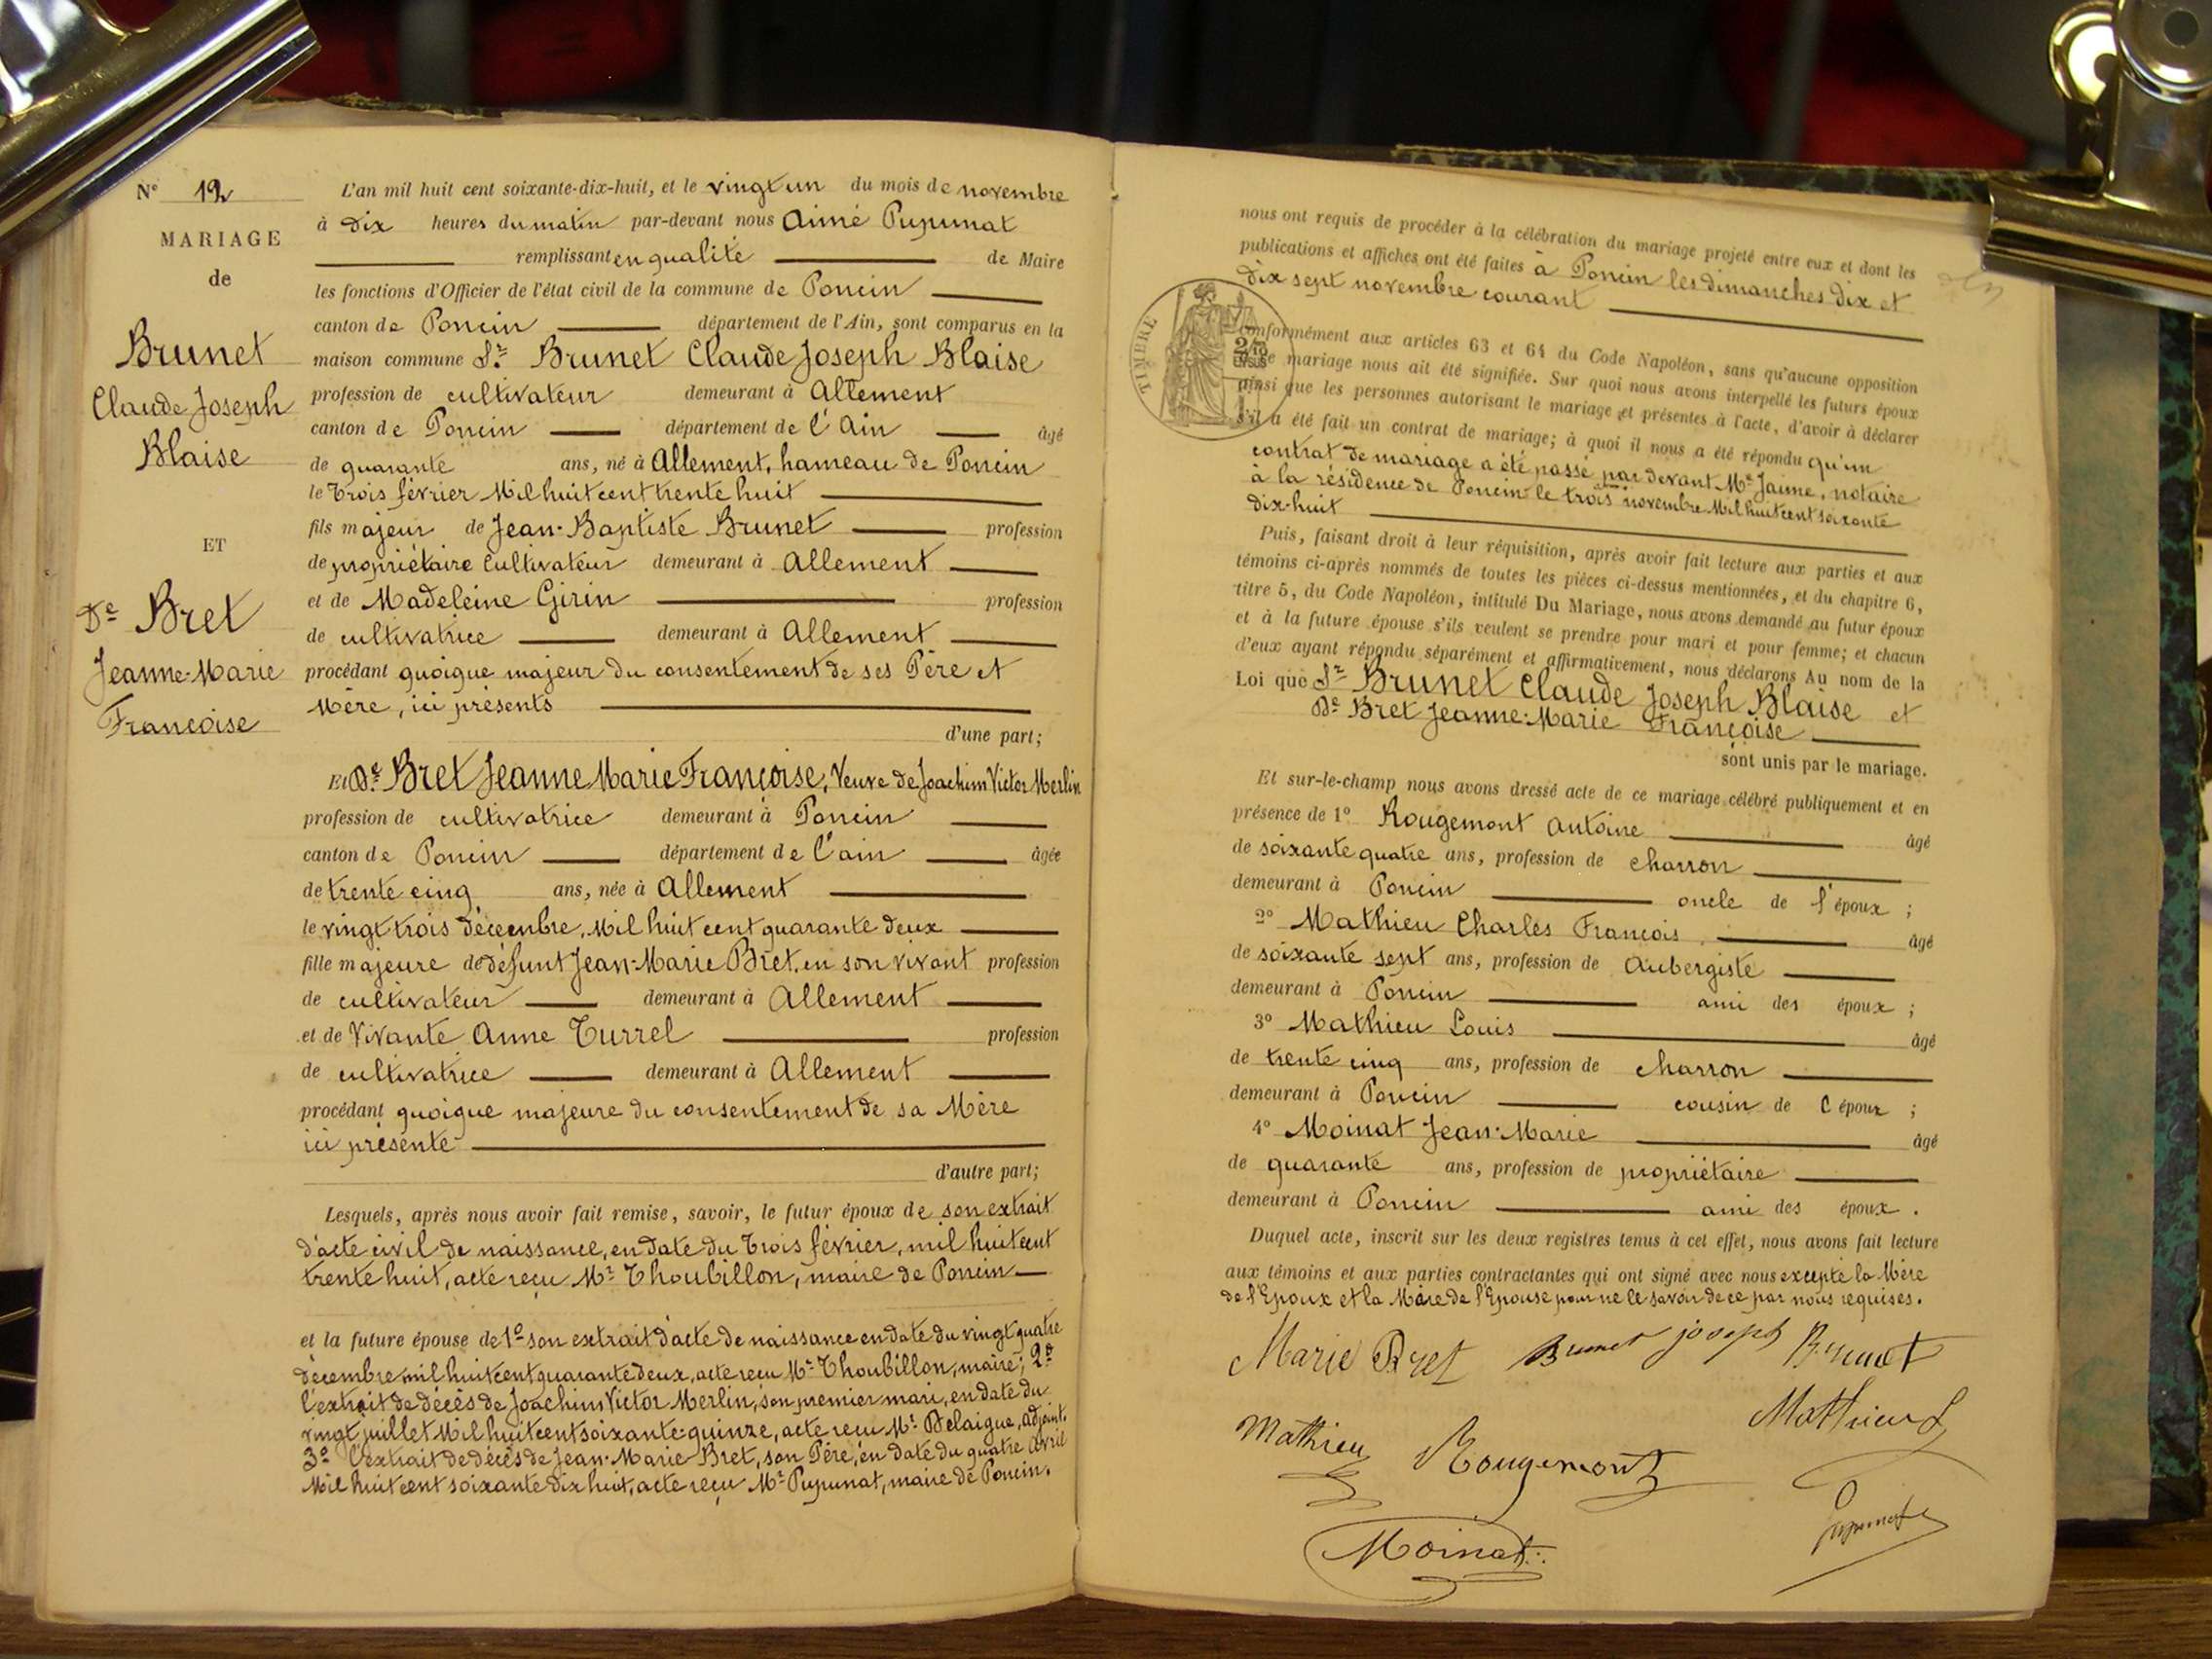 N° 12
MARIAGE
de
Brunet
Claude Joseph
Blaise
ET
De Bret
Jeanne-Marie
Françoise
L'an mil huit cent soixante-dix-huit, et le vingt un du mois de novembre
à dix heures du matin par-devant nous Aimé Pupunat
remplissant en qualité de Maire
les fonctions d'Officier de l'état civil de la commune de Poncin
canton de Poncin département de l'Ain, sont comparus en la
maison commune Sr Brunet Claude Joseph Blaise
profession de cultivateur demeurant à Allement
canton de Poncin département de l'Ain âgé
de quarante ans, né à Allement, hameau de Poncin
le trois février Mil huit cent trente huit
fils majeur de Jean-Baptiste Brunet profession
de propriétaire cultivateur demeurant à Allement
et de Madeleine Girin profession
de cultivatrice demeurant à Allement
procédant quoique majeur du consentement de ses Père et
Mère, ici présents
d'une part;
Et De Bret Jeanne Marie Françoise, Veuve de Joachim Victor Merlin
profession de cultivatrice demeurant à Poncin
canton de Poncin département de l'ain âgée
de trente cinq ans, née à Allement
le vingt trois décembre, Mil huit cent quarante deux
fille majeure de défunt Jean-Marie Bret, en son vivant profession
de cultivateur demeurant à Allement
et de Vivante Anne Turrel profession
de cultivatrice demeurant à Allement
procédant quoique majeure du consentement de sa Mère
ici présente
d'autre part;
Lesquels, après nous avoir fait remise, savoir, le futur époux de son extrait
d'acte civil de naissance, en date du trois février, mil huit cent
trente huit, acte reçu Mr Thoubillon, maire de Poncin
et la future épouse de 1° son extrait d'acte de naissance en date du vingt quatre
décembre mil huit cent quarante deux, acte reçu Mr Thoubillon, maire; 2°
l'extrait de décès de Joachim Victor Merlin, son premier mari, en date du
vingt juillet Mil huit cent soixante-quinze, acte reçu Mr Delaigue, adjoint.
3° L'extrait de décès de Jean-Marie Bret, son Père, en date du quatre avril
Mil huit cent soixante dix huit, acte reçu Mr Pupunat, maire de Poncin.
nous ont requis de procéder à la célébration du mariage projeté entre eux et dont les
publications et affiches ont été faites à Poncin les dimanches dix et
dix sept novembre courant
TIMBRE
2/10
EN SUS
conformément aux articles 63 et 64 du Code Napoléon, sans qu'aucune opposition
mariage nous ait été signifiée. Sur quoi nous avons interpellé les futurs époux
ainsi que les personnes autorisant le mariage et présentes à l'acte, d'avoir à déclarer
s'il a été fait un contrat de mariage; à quoi il nous a été répondu qu'un
contrat de mariage a été passé par devant Me Jaime, notaire
à la résidence de Poncin le trois novembre Mil huit cent soixante
dix-huit
Puis, faisant droit à leur réquisition, après avoir fait lecture aux parties et aux
témoins ci-après nommés de toutes les pièces ci-dessus mentionnées, et du chapitre 6,
titre 5, du Code Napoléon, intitulé Du Mariage, nous avons demandé au futur époux
et à la future épouse s'ils veulent se prendre pour mari et pour femme; et chacun
d'eux ayant répondu séparément et affirmativement, nous déclarons Au nom de la
Loi que Sr Brunet Claude Joseph Blaise et
De Bret Jeanne-Marie Françoise
sont unis par le mariage.
Et sur-le-champ nous avons dressé acte de ce mariage célébré publiquement et en
présence de 1° Rougemont Antoine âgé
de soixante quatre ans, profession de charron
demeurant à Poncin oncle de l'époux ;
2° Mathieu Charles François âgé
de soixante sept ans, profession de Aubergiste
demeurant à Poncin ami des époux ;
3° Mathieu Louis âgé
de trente cinq ans, profession de charron
demeurant à Poncin cousin de l'époux ;
4° Moinat Jean-Marie âgé
de quarante ans, profession de propriétaire
demeurant à Poncin ami des époux .
Duquel acte, inscrit sur les deux registres tenus à cet effet, nous avons fait lecture
aux témoins et aux parties contractantes qui ont signé avec nous excepté la Mère
de l'Epoux et la Mère de l'Epouse pour ne le savoir de ce par nous requises.
Marie Bret Brunet joseph Brunet
Mathieu Rougemont Mathieu L
Moinat Pupunat